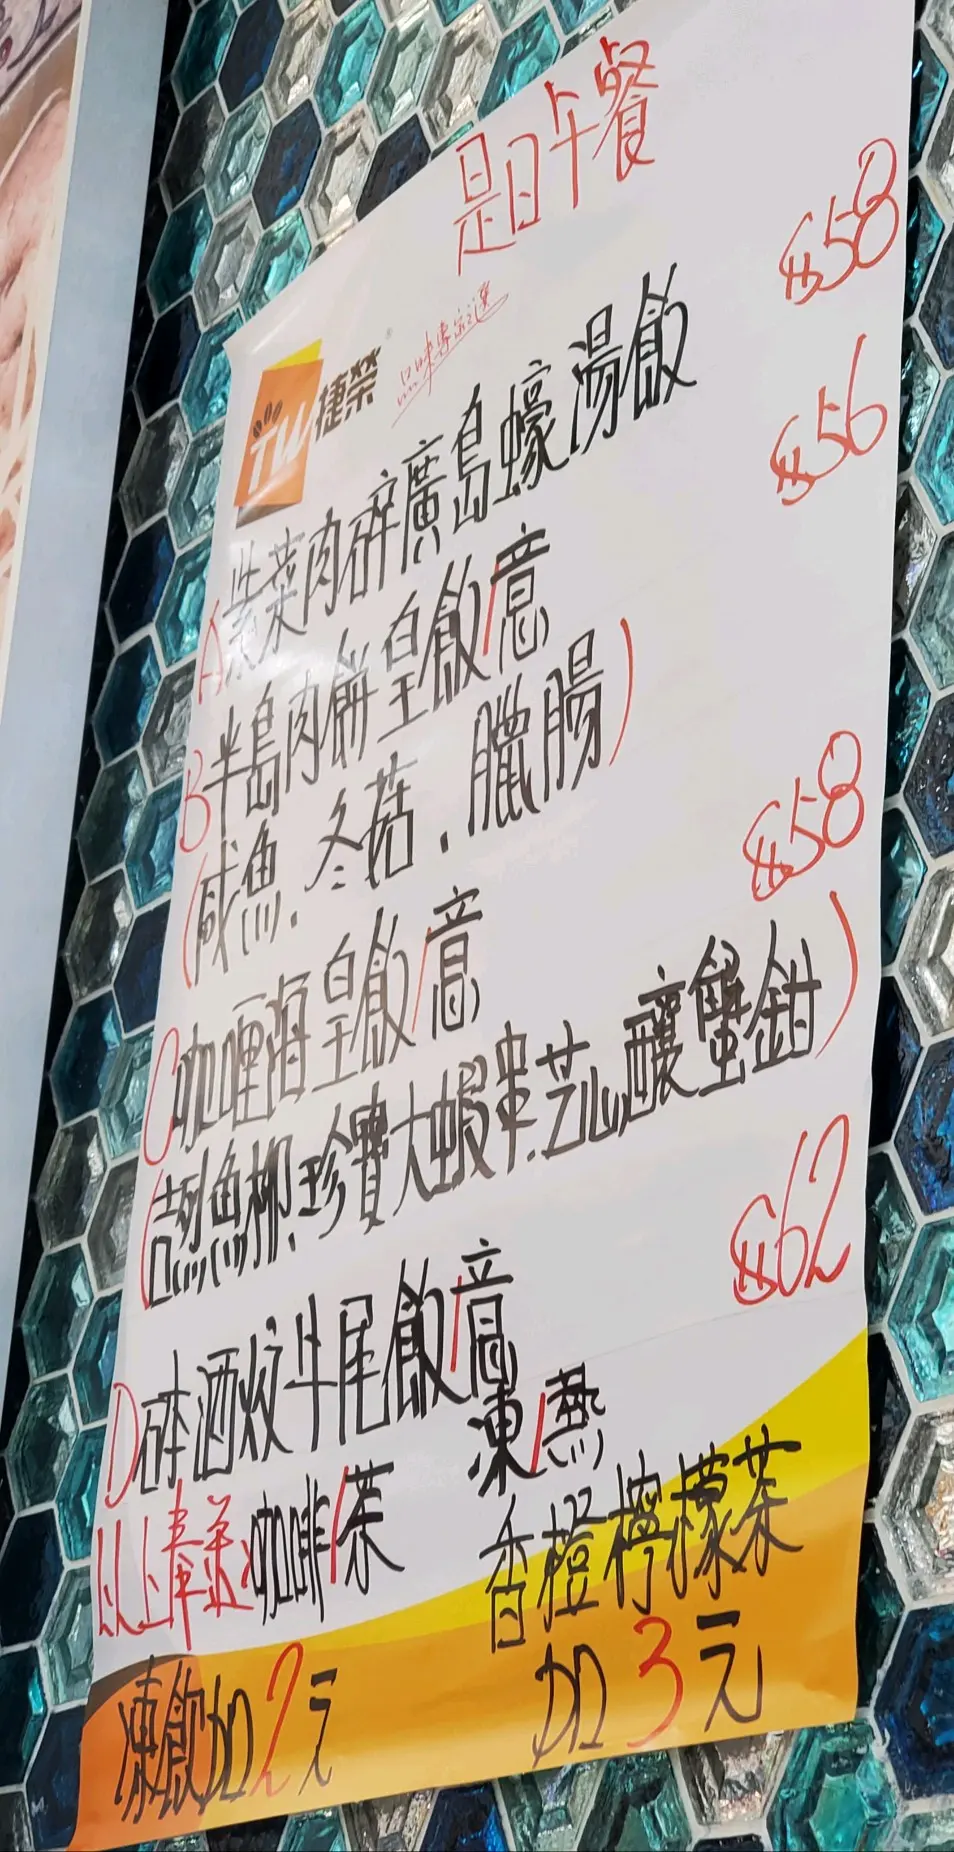 是日午餐
捷榮
TW
品味專家之選
$58
A 紫菜肉碎廣島蠔湯飯
$56
B 半島肉餅皇飯/意
(咸魚、冬菇、臘腸)
$58
C 咖喱海皇飯/意
(吉列魚柳、珍寶大蝦串、芝心釀蟹鉗)
$62
D 砵酒炆牛尾飯/意
以上奉送:咖啡/茶
凍/热
香橙檸檬茶
凍飲加2元
加3元